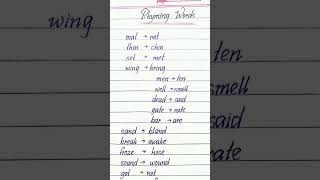 Rhyming Words
mat → net
thin → chin
set → met
wing → bring
men → ten
well → smell
dead → said
gate → rate
bar → are
sand → bland
break → awake
froze → hose
sound → wound
get → not
ten
smell
said
rate